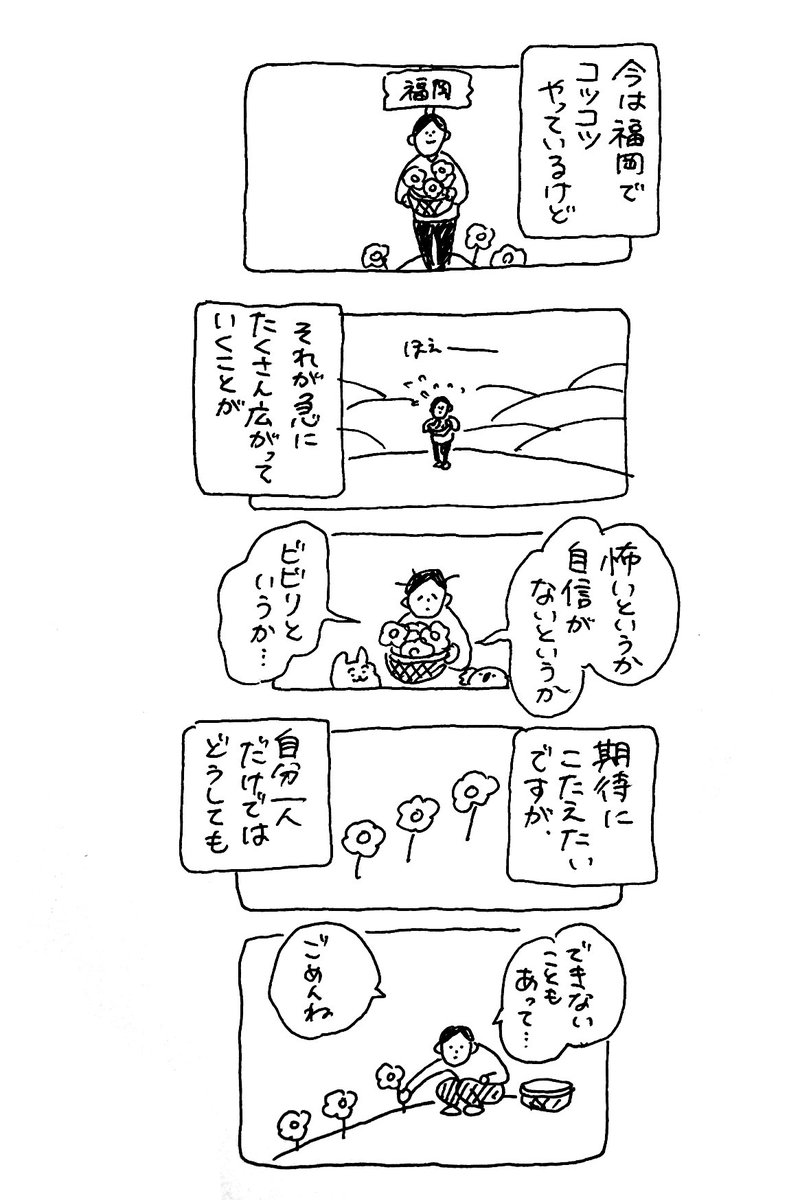 今は福岡で
コツコツ
やっているけど
福岡
それが急に
たくさん広がって
いくことが
ほえー
怖いというか
自信が
ないというか
ビビリと
いうか…
期待に
こたえたい
ですが、
自分一人
だけでは
どうしても
できない
ことも
あって…
ごめんね